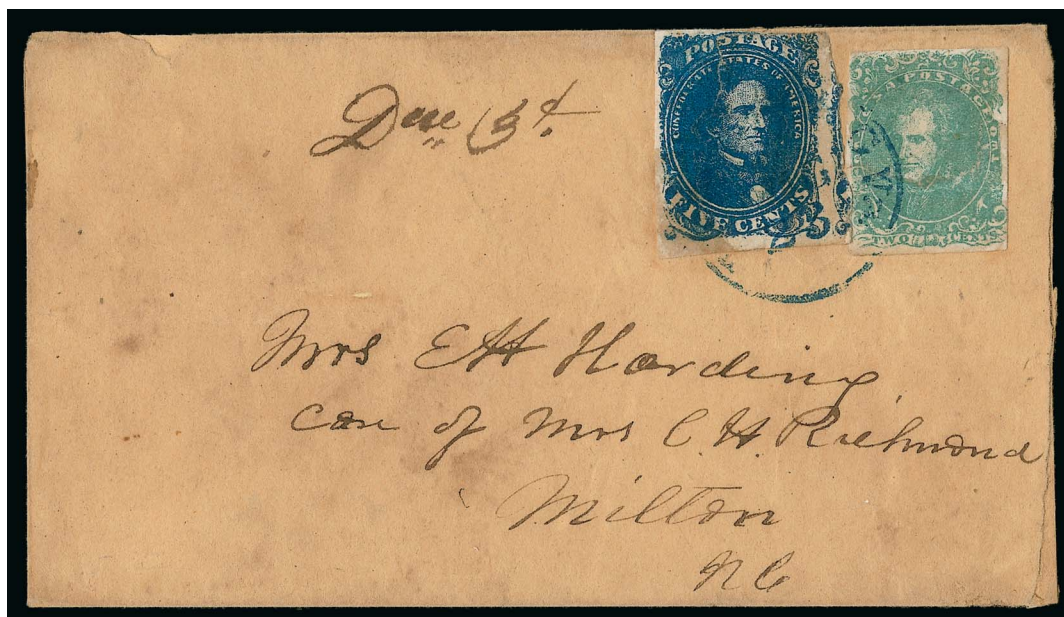 Due 3 ct.
POSTAGE
CONFEDERATE STATES OF AMERICA
FIVE CENTS
C.S.A. POSTAGE
TWO CENTS
25
Mrs E H Harding
care of Mrs C. H. Richmond
Milton
N C